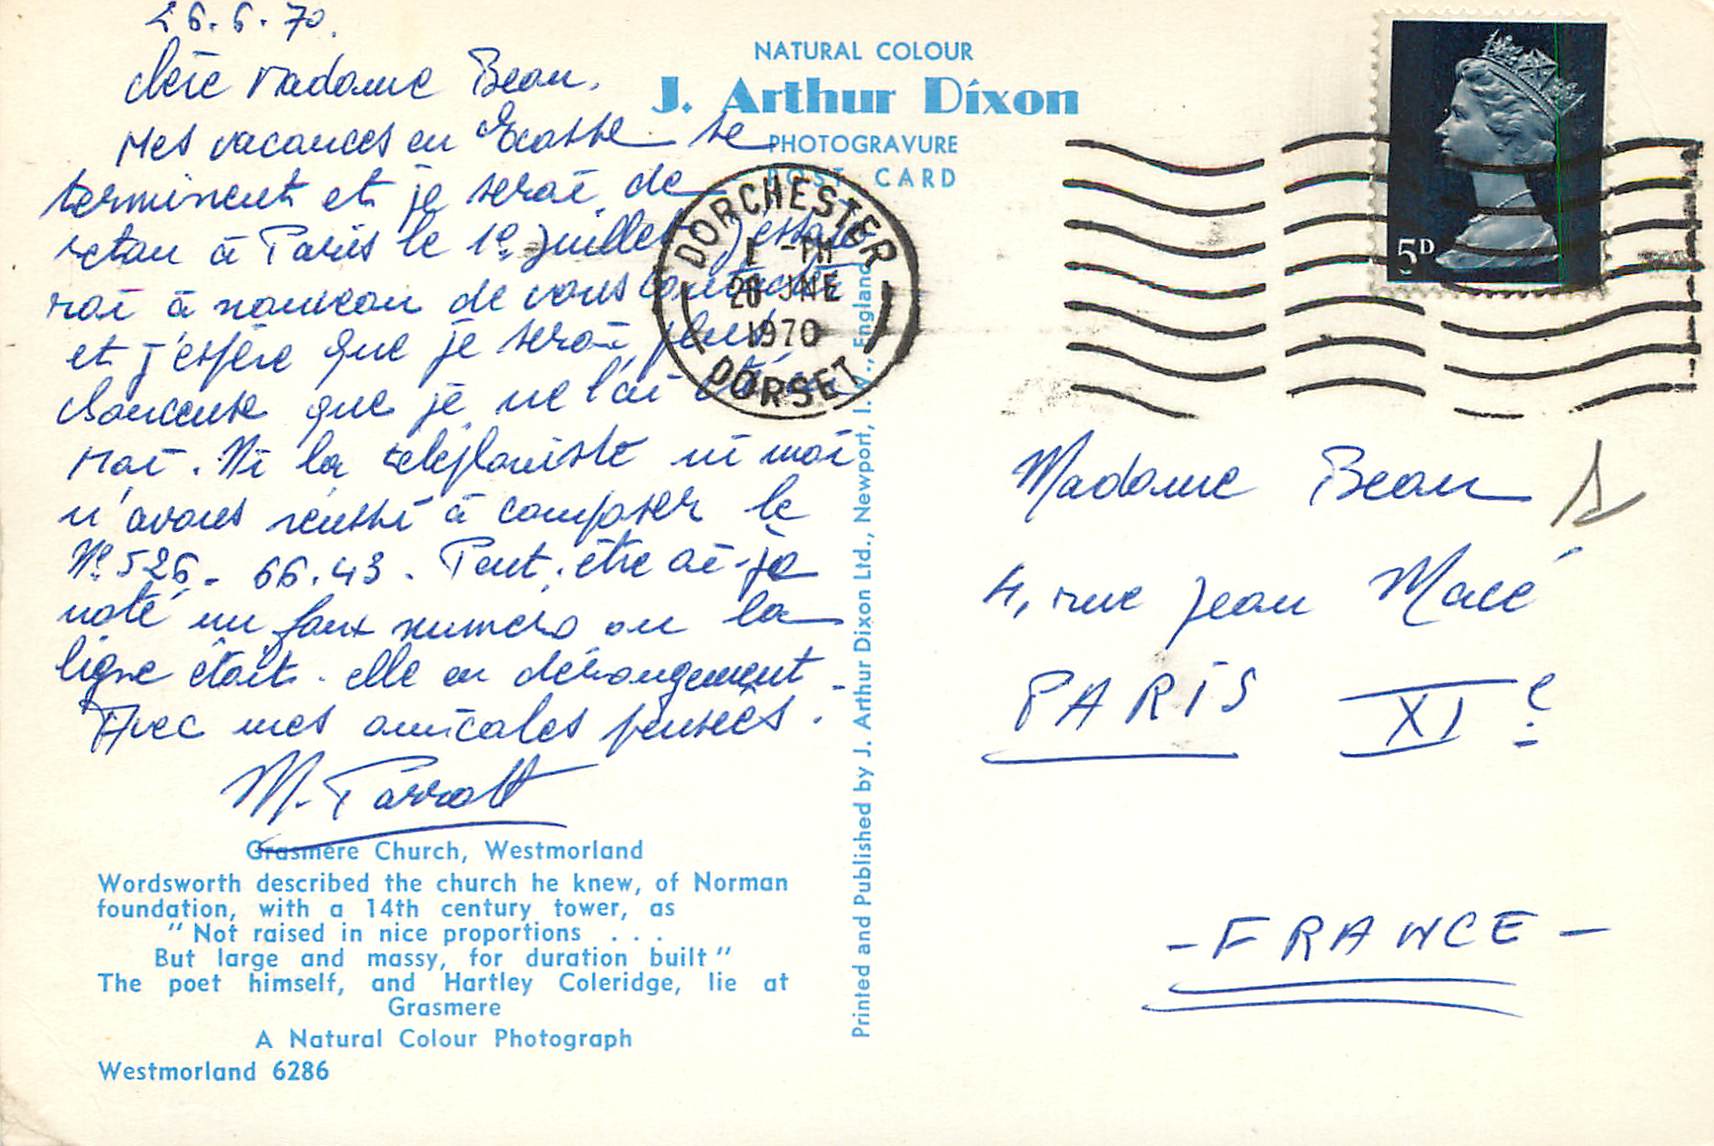 26.6.70.
Chère Madame Beau,
Mes vacances en Ecosse se
terminent et je serai de
retour à Paris le 1e Juillet J'essaie-
rai à nouveau de vous contacter
et j'espère que je serai plus
chanceuse que je ne l'ai été en
Mai. Ni la téléphoniste ni moi
n'avons réussi à composer le
N° 526-66.43. Peut-être ai-je
noté un faux numéro ou la
ligne était-elle en dérangement.
Avec mes amicales pensées.
M. Parrott
Grasmere Church, Westmorland
Wordsworth described the church he knew, of Norman
foundation, with a 14th century tower, as
"Not raised in nice proportions . . .
But large and massy, for duration built"
The poet himself, and Hartley Coleridge, lie at
Grasmere
A Natural Colour Photograph
Westmorland 6286
NATURAL COLOUR
J. Arthur Dixon
PHOTOGRAVURE
POST CARD
Printed and Published by J. Arthur Dixon Ltd., Newport, I.W., England
DORCHESTER
JNE
1970
DORSET
5D
Madame Beau
4, rue Jean Macé
PARIS XIe
- FRANCE -